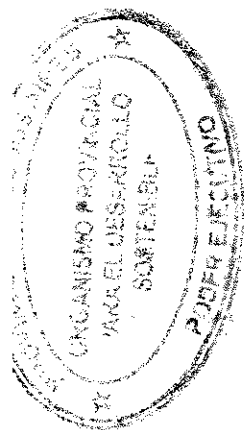 ORGANISMO PROVINCIAL
PARA EL DESARROLLO
SOSTENIBLE
PODER EJECUTIVO